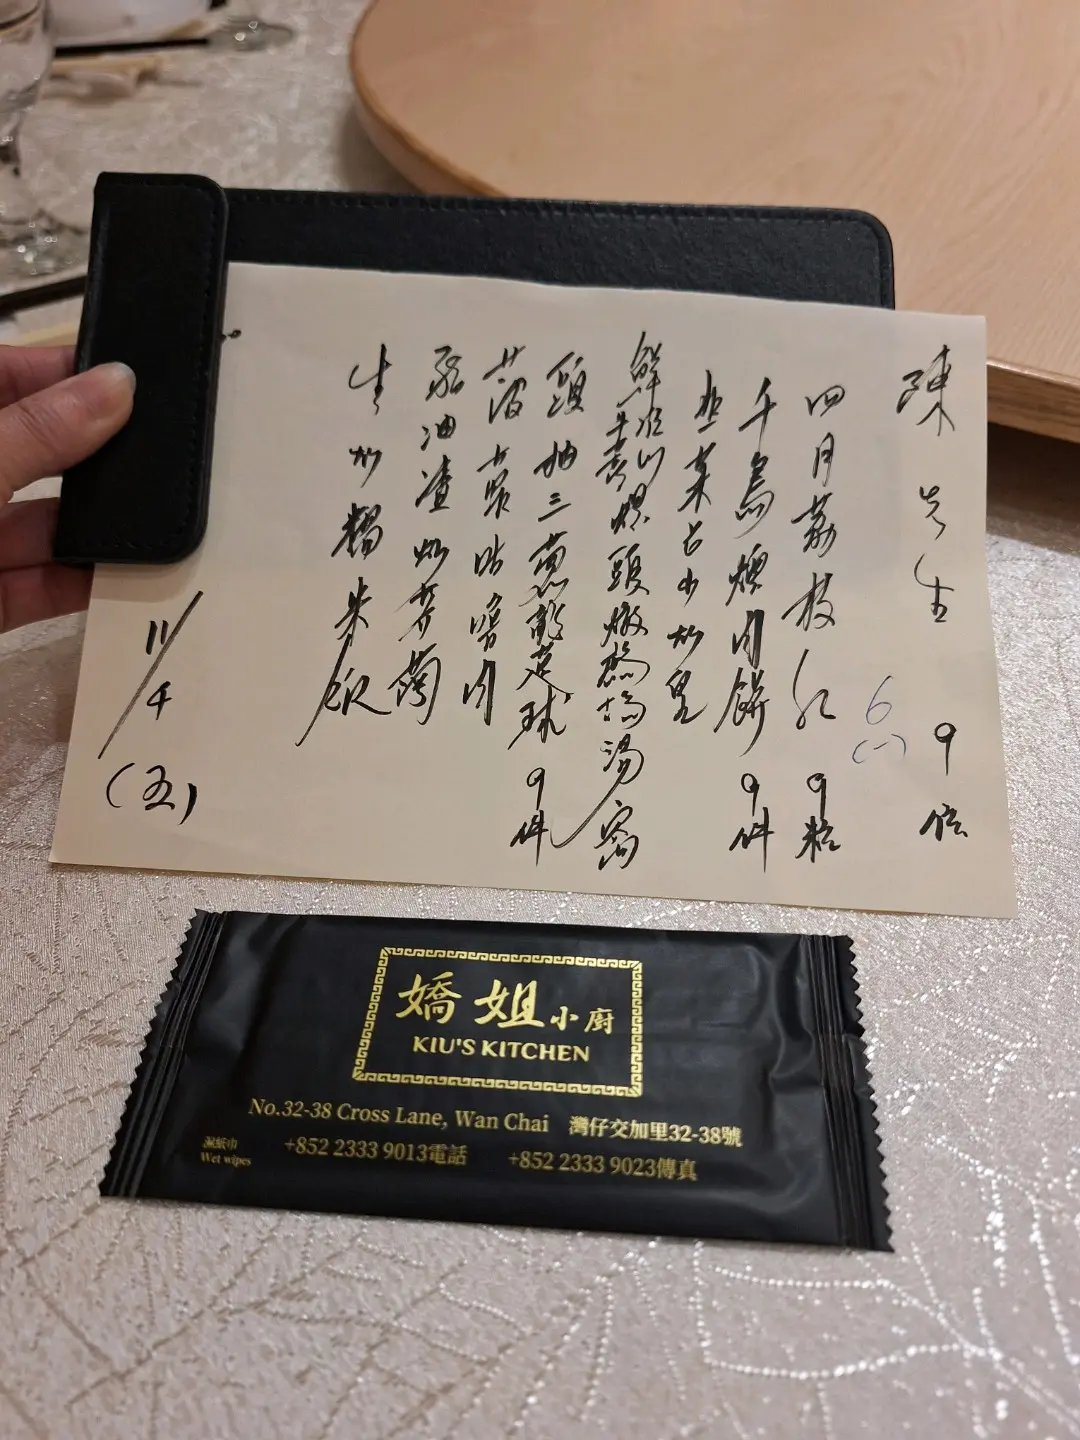 陳先生 9位
6
(一)
四月荔枝紅 9粒
千島煙肉餅 9件
韭菜 小炒皇
鮮淮山 頭燉 湯 窩
頭抽三蔥 球 9件
菠蘿咕嚕肉
豬油渣炒 蔔
生炒糯米飯
11/4
(五)
嬌姐小廚
KIU'S KITCHEN
No.32-38 Cross Lane, Wan Chai 灣仔交加里32-38號
濕紙巾
Wet wipes
+852 2333 9013電話 +852 2333 9023傳真